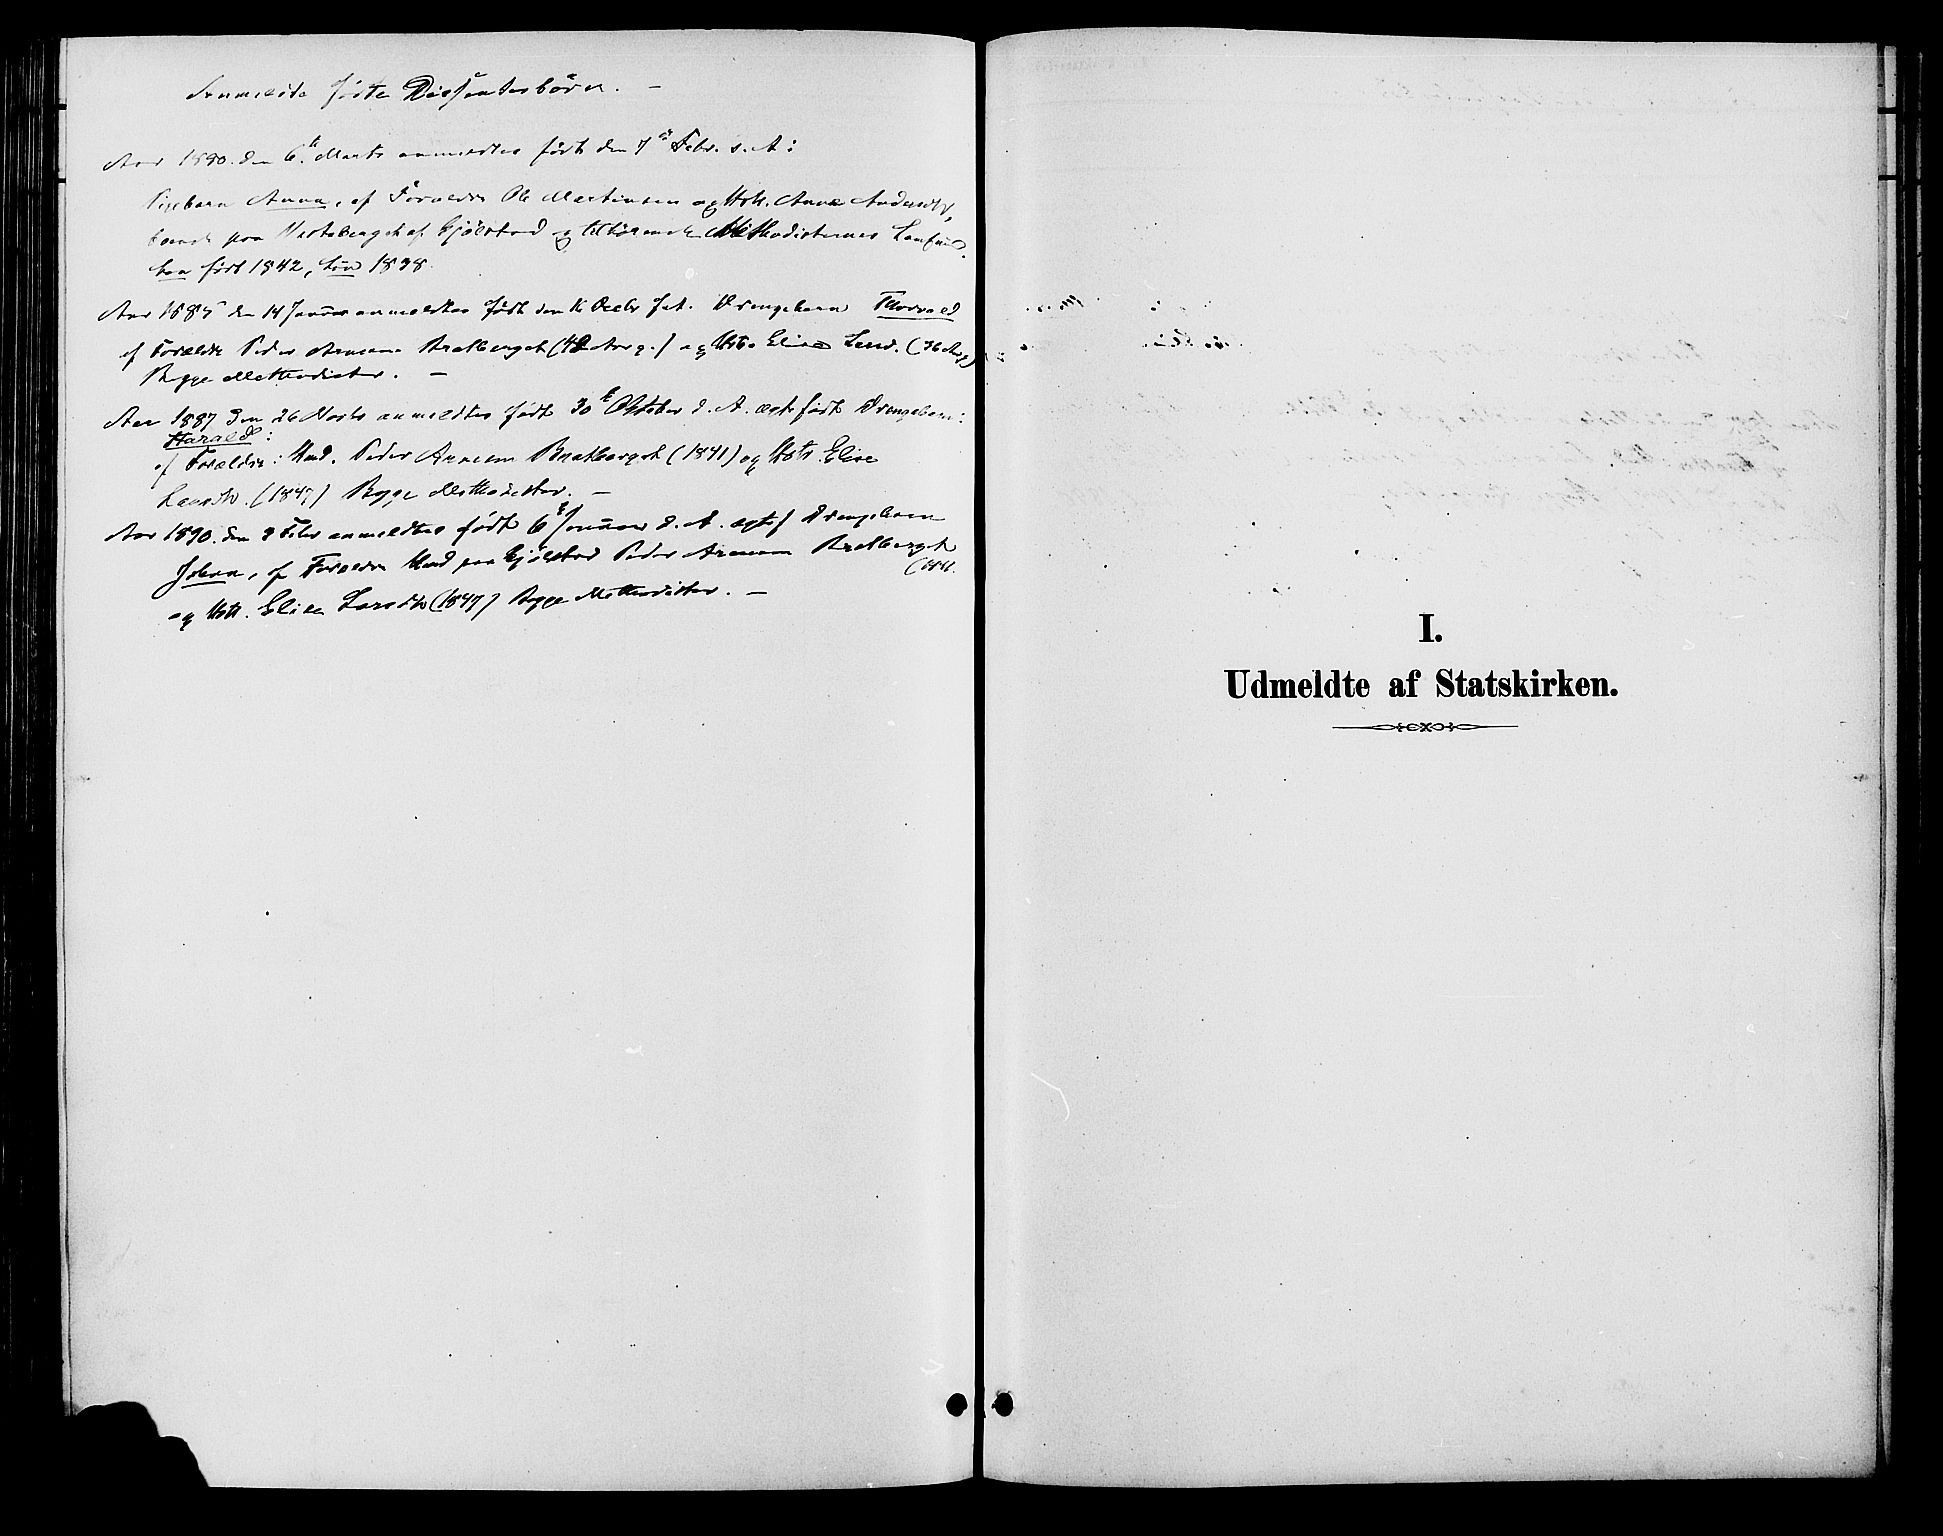 Anmeldte fødte Dissenterbörn. –
Aar 1890. den 6te Marts anmeldtes födt den 7de Febr. s. A:
Pigebarn Anna, af Forældre Ole Martinsen og Hstr. Anne Andersdtr,
boende paa af Gjölstad og tilhörende Methodisternes Samfund.
han født 1842, hun 1838.
Aar 1885 den 14 Januar anmeldtes født den 16 Decbr f. A. Drengebarn Thorvald
af Forældre Peder Arnesen Bratberget (42 Aar g.) og Hstr. Elise Larsd. (36 Aar g)
Begge Methodister. –
Aar 1887 den 26 Marts anmeldtes født 30te Oktober d. A. ægte født Drengebarn:
Harald:
af Forældre: Hmd. Peder Arnesen Bratberget (1841) og Hstr. Elise
Larsdtr. (1847) Begge Methodister. –
Aar 1890. den 8 Febr anmeldtes født 6te Januar d. A. ægte f Drengebarn
Johan, af Forældre Hmd paa Gjölstad Peder Arnesen Bratberget
(1841.
og Hstr. Elise Larsdtr (1847) Begge Methodister. –
I.
Udmeldte af Statskirken.